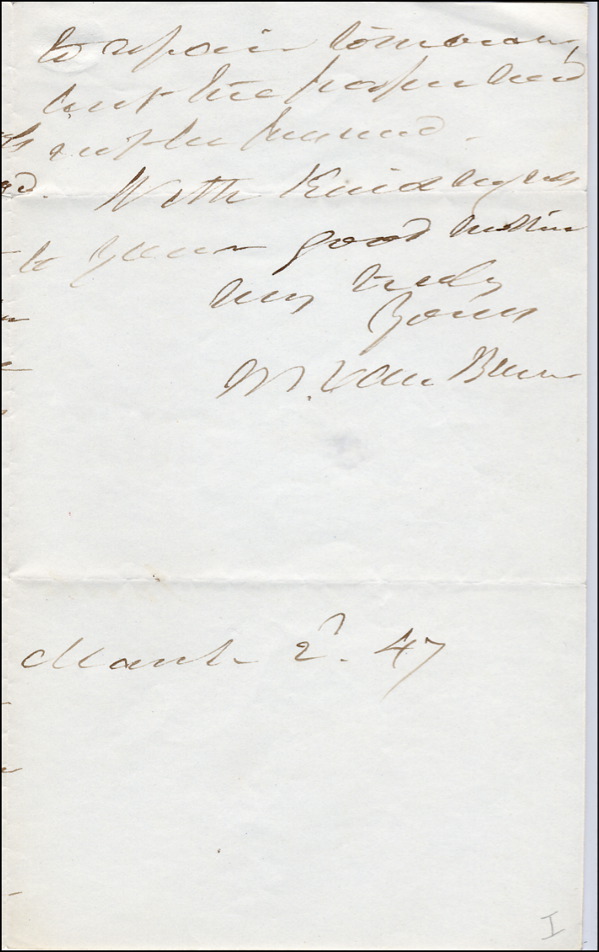 to repair tomorrow,
but the
With Kind regards
to your good mother
Very truly
Yours
M. Van Buren
March 2d. 47
I